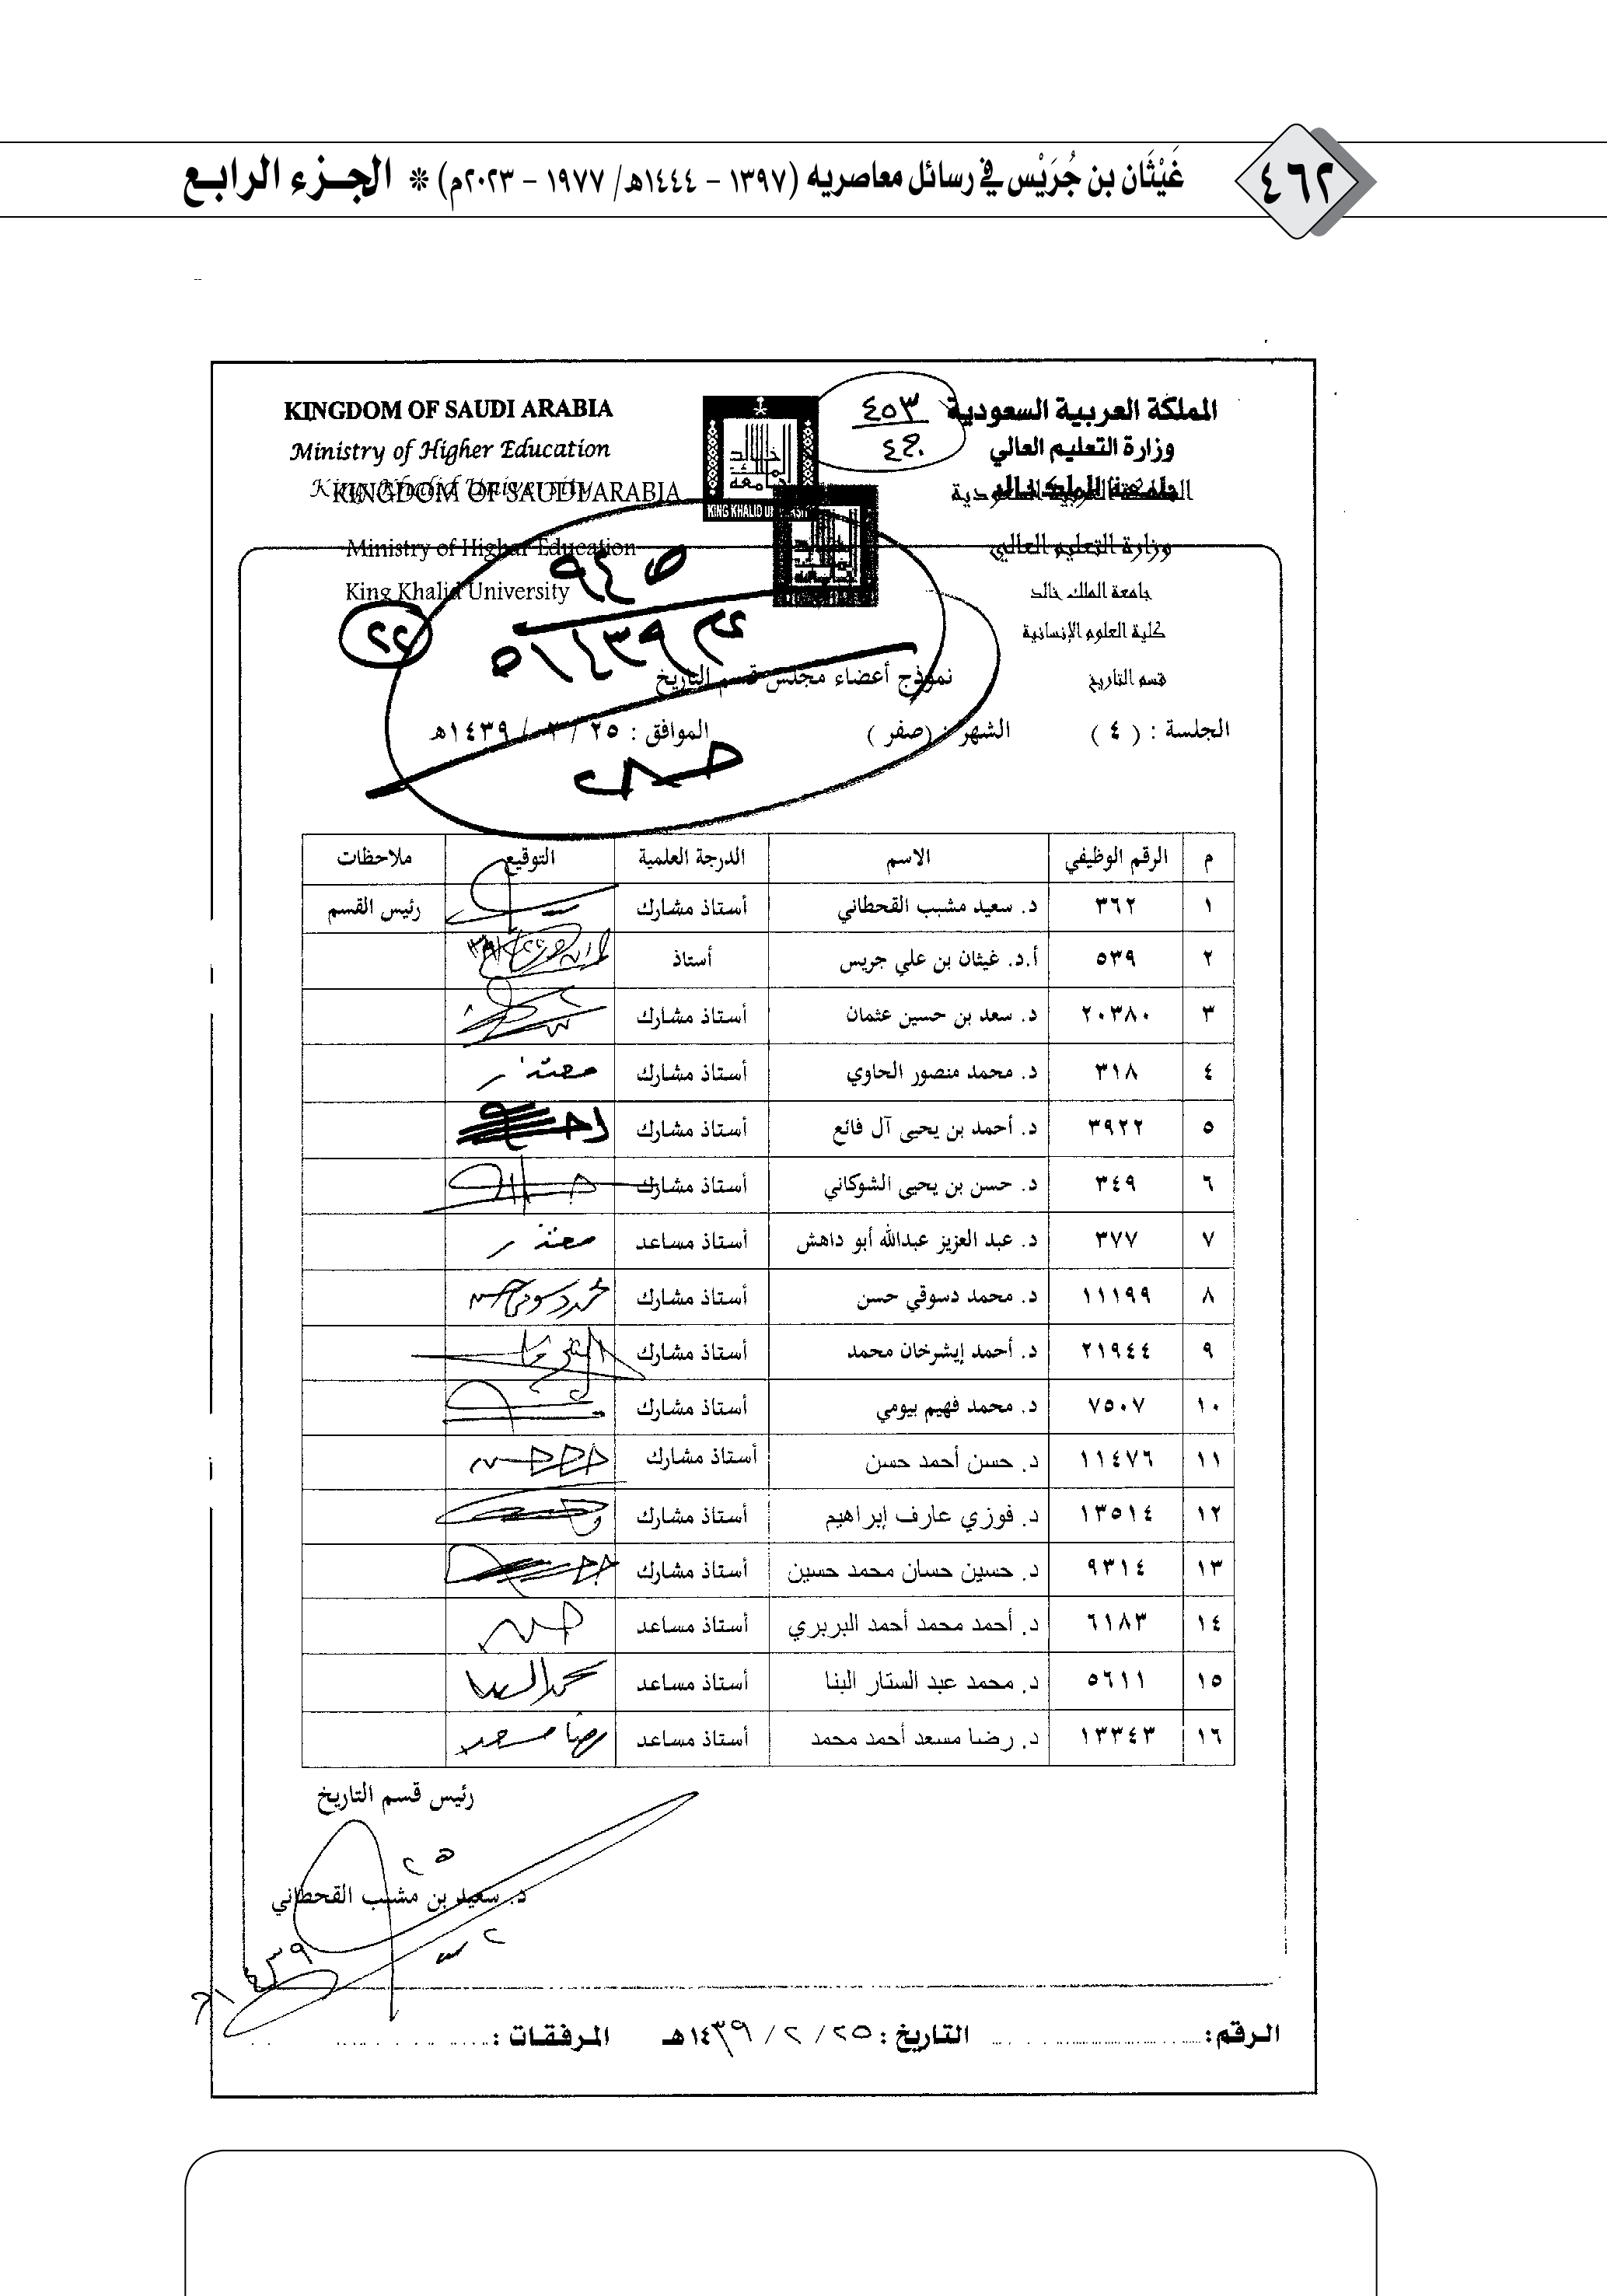 ٤٦٢
غَيْثَان بن جُرَيْس في رسائل معاصريه (١٣٩٧ - ١٤٤٤هـ/ ١٩٧٧ - ٢٠٢٣م) * الجزء الرابع
KINGDOM OF SAUDI ARABIA
Ministry of Higher Education
King Khalid University
المملكة العربية السعودية
وزارة التعليم العالي
جامعة الملك خالد
KING KHALID UNIVERSITY
٤٥٣
KINGDOM OF SAUDI ARABIA
Ministry of Higher Education
King Khalid University
المملكة العربية السعودية
وزارة التعليم العالي
جامعة الملك خالد
كلية العلوم الإنسانية
قسم التاريخ
٩٤٥
٢٢
نموذج أعضاء مجلس قسم التاريخ
الجلسة : ( ٤ ) الشهر : (صفر ) الموافق : ٢٥ / ٢ / ١٤٣٩هـ
م الرقم الوظيفي الاسم الدرجة العلمية التوقيع ملاحظات
١ ٣٦٢ د. سعيد مشبب القحطاني أستاذ مشارك رئيس القسم
٢ ٥٣٩ أ.د. غيثان بن علي جريس أستاذ
٣ ٢٠٣٨٠ د. سعد بن حسين عثمان أستاذ مشارك
٤ ٣١٨ د. محمد منصور الحاوي أستاذ مشارك معتذر
٥ ٣٩٢٢ د. أحمد بن يحيى آل فائع أستاذ مشارك
٦ ٣٤٩ د. حسن بن يحيى الشوكاني أستاذ مشارك
٧ ٣٧٧ د. عبد العزيز عبدالله أبو داهش أستاذ مساعد معتذر
٨ ١١١٩٩ د. محمد دسوقي حسن أستاذ مشارك محمد دسوقي حسن
٩ ٢١٩٤٤ د. أحمد إيشرخان محمد أستاذ مشارك
١٠ ٧٥٠٧ د. محمد فهيم بيومي أستاذ مشارك
١١ ١١٤٧٦ د. حسن أحمد حسن أستاذ مشارك
١٢ ١٣٥١٤ د. فوزي عارف إبراهيم أستاذ مشارك
١٣ ٩٣١٤ د. حسين حسان محمد حسين أستاذ مشارك
١٤ ٦١٨٣ د. أحمد محمد أحمد البربري أستاذ مساعد
١٥ ٥٦١١ د. محمد عبد الستار البنا أستاذ مساعد
١٦ ١٣٣٤٣ د. رضا مسعد أحمد محمد أستاذ مساعد رضا مسعد
رئيس قسم التاريخ
د. سعيد بن مشبب القحطاني
الرقم: التاريخ: ٢٥ / ٢ / ١٤٣٩هـ المرفقات: